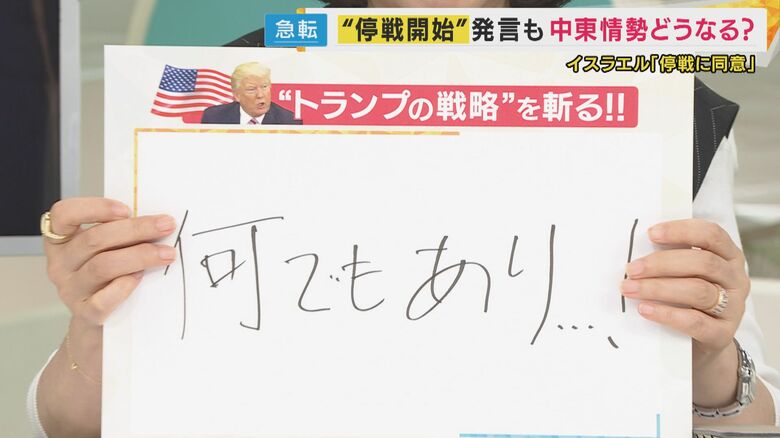 急転 “停戦開始”発言も 中東情勢どうなる?
イスラエル「停戦に同意」
“トランプの戦略”を斬る!!
何でもあり…!